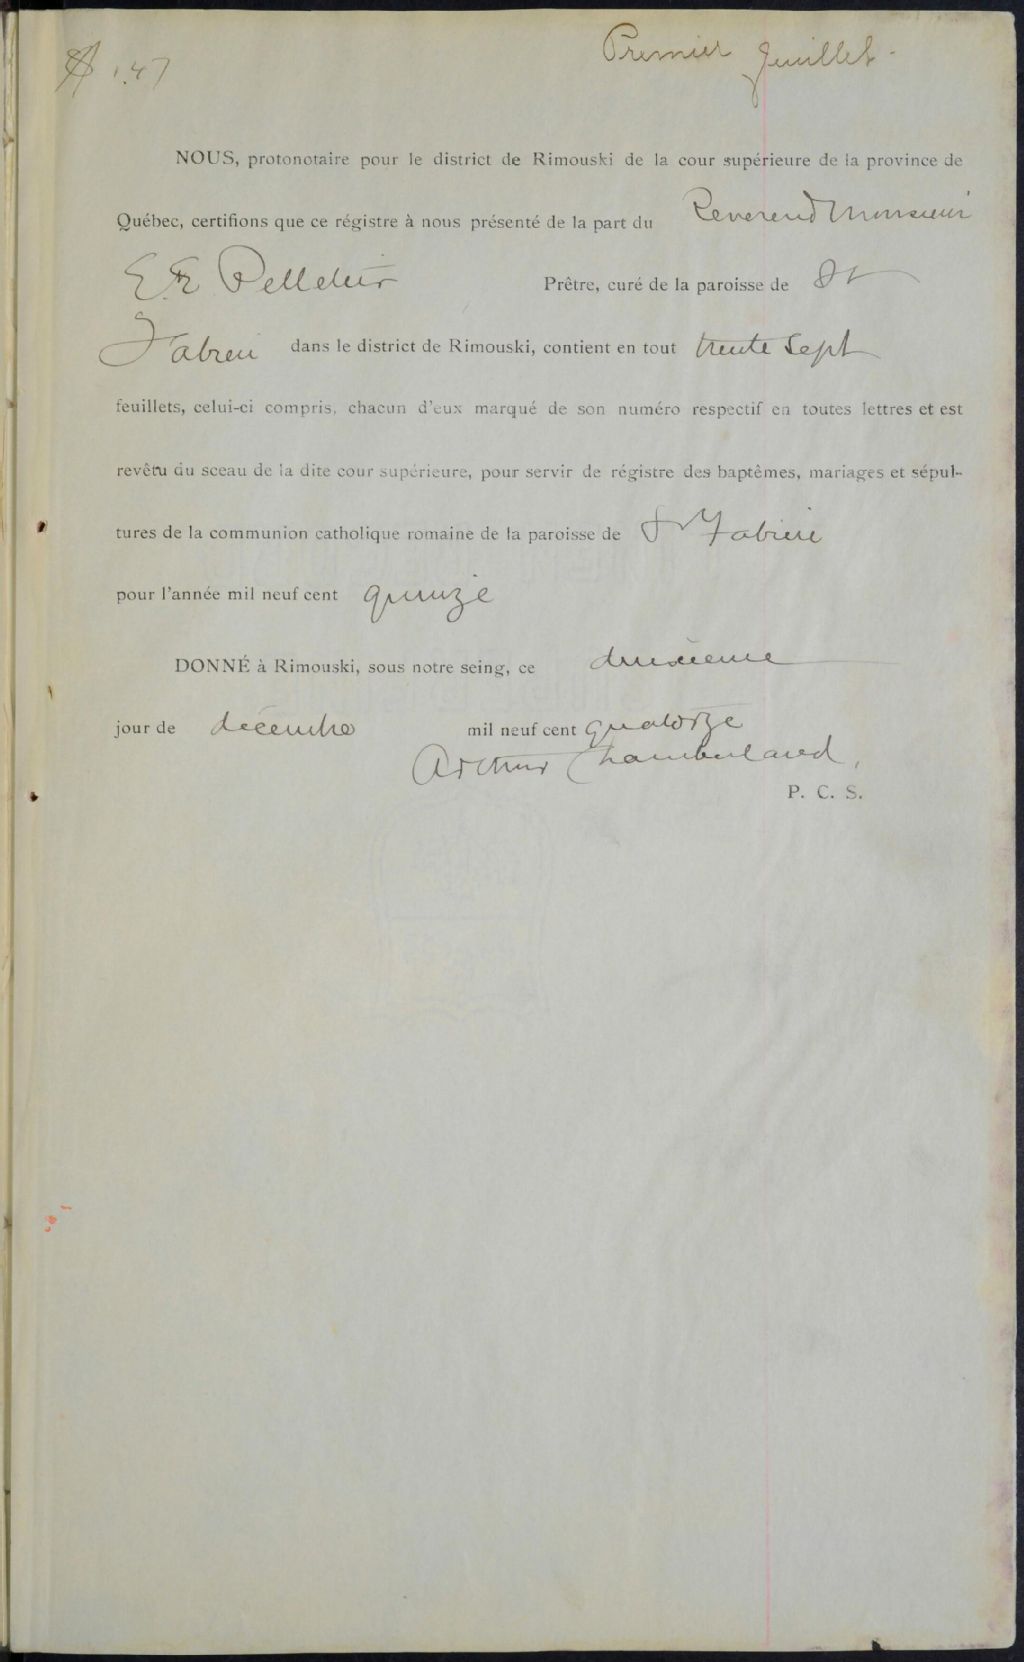 Premier feuillet.
1.47
NOUS, protonotaire pour le district de Rimouski de la cour supérieure de la province de
Québec, certifions que ce régistre à nous présenté de la part du Reverend Monsieur
E. E. Pelletier Prêtre, curé de la paroisse de St
Fabien dans le district de Rimouski, contient en tout trente sept
feuillets, celui-ci compris, chacun d'eux marqué de son numéro respectif en toutes lettres et est
revêtu du sceau de la dite cour supérieure, pour servir de régistre des baptêmes, mariages et sépul-
tures de la communion catholique romaine de la paroisse de St Fabien
pour l'année mil neuf cent quinze
DONNÉ à Rimouski, sous notre seing, ce deuxieme
jour de décembre mil neuf cent quatorze
Arthur Chamberland,
P. C. S.